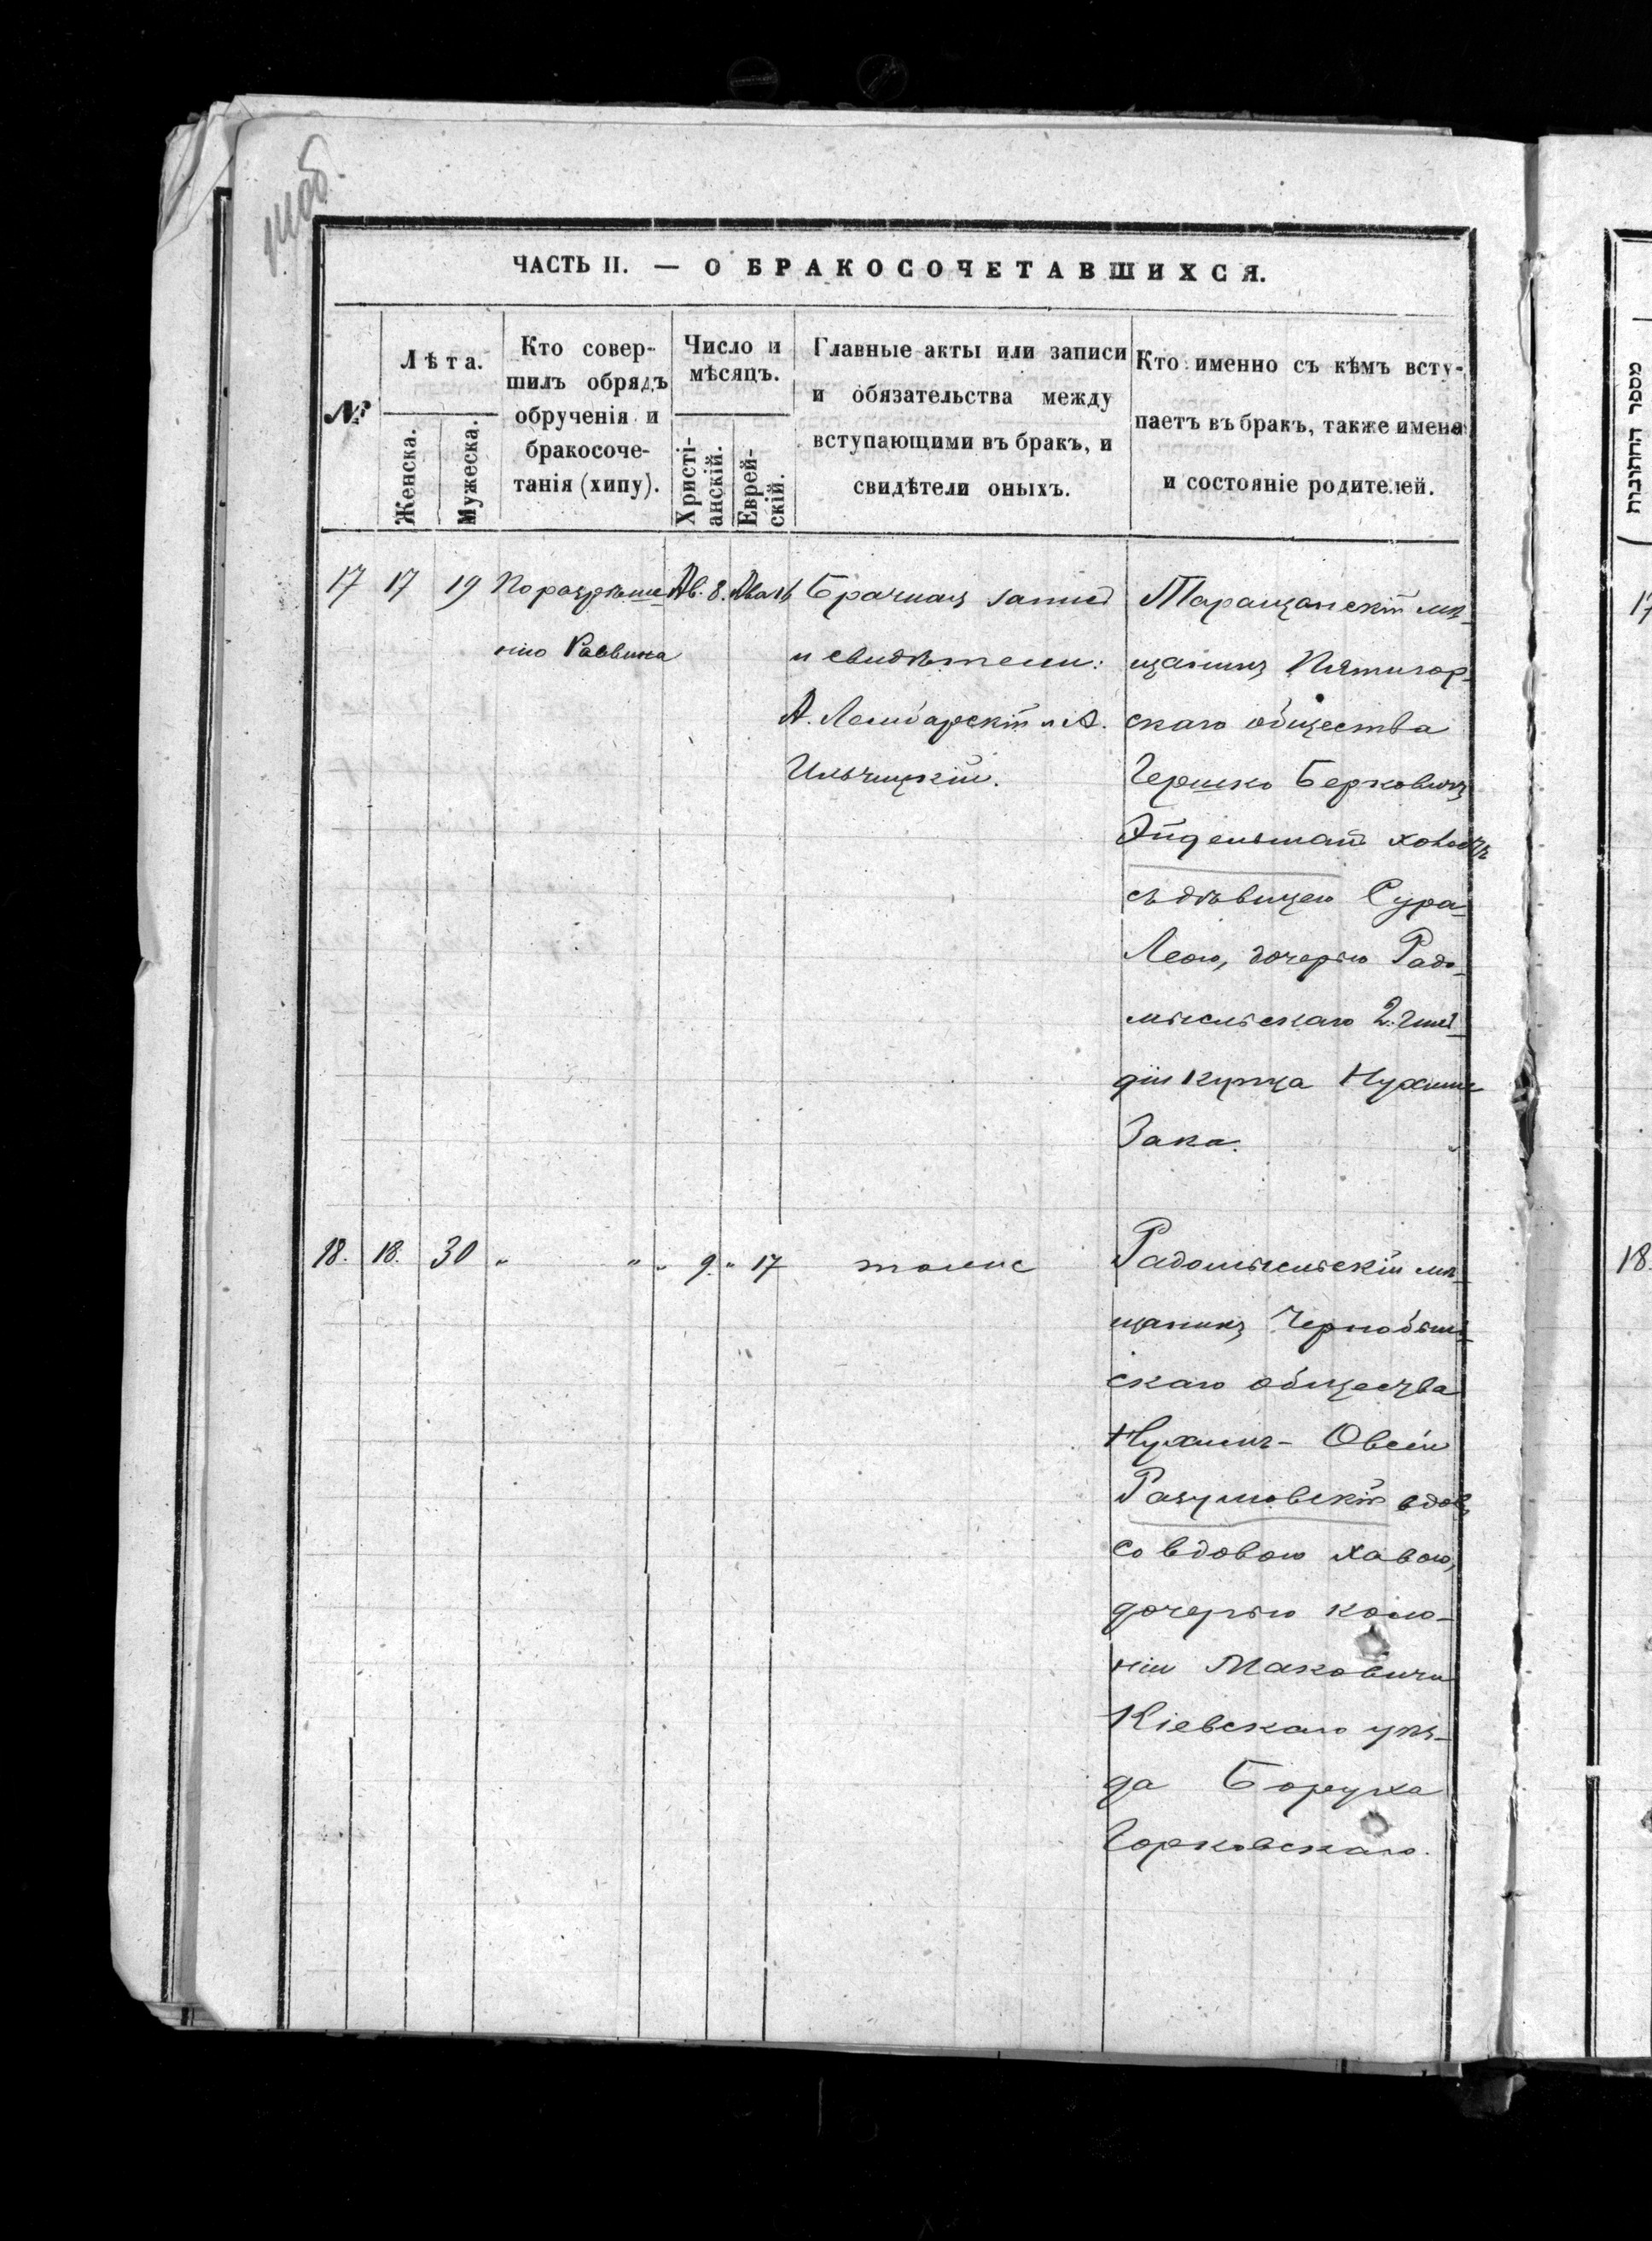 ЧАСТЬ II. — О БРАКОСОЧЕТАВШИХСЯ.
№
Лѣта.
Женска.
Мужеска.
Кто совер-
шилъ обрядъ
обрученія и
бракосоче-
танія (хипу).
Число и
мѣсяцъ.
Христі-
анскій.
Еврей-
скій.
Главные акты или записи
и обязательства между
вступающими въ бракъ, и
свидѣтели оныхъ.
Кто именно съ кѣмъ всту-
паетъ въ бракъ, также имена
и состояніе родителей.
17 17 19 По разрѣше-
нію Раввина
Ав. 8. Ава 16
Брачная запись
и свидѣтели:
А. Лембарскій и А.
Ильчицкій.
Таращанскій мѣ-
щанинъ Пятигор-
скаго общества
Гершко Берковичъ
Эйдельманъ холостъ
съ дѣвицею Сура-
Леою, дочерью Радо-
мысльскаго 2. гиль-
діи купца Нухима
Зака.
18. 18. 30 " " " 9. " 17 тоже
Радомысльскій мѣ-
щанинъ Чернобыль-
скаго общества
Нухимъ- Овсій
Разумовскій вдовъ
со вдовою Хавою,
дочерью коло-
ніи Маковичи
Кіевскаго уѣз-
да Боруха
Горковскаго.
מספר החתונות
17
18.